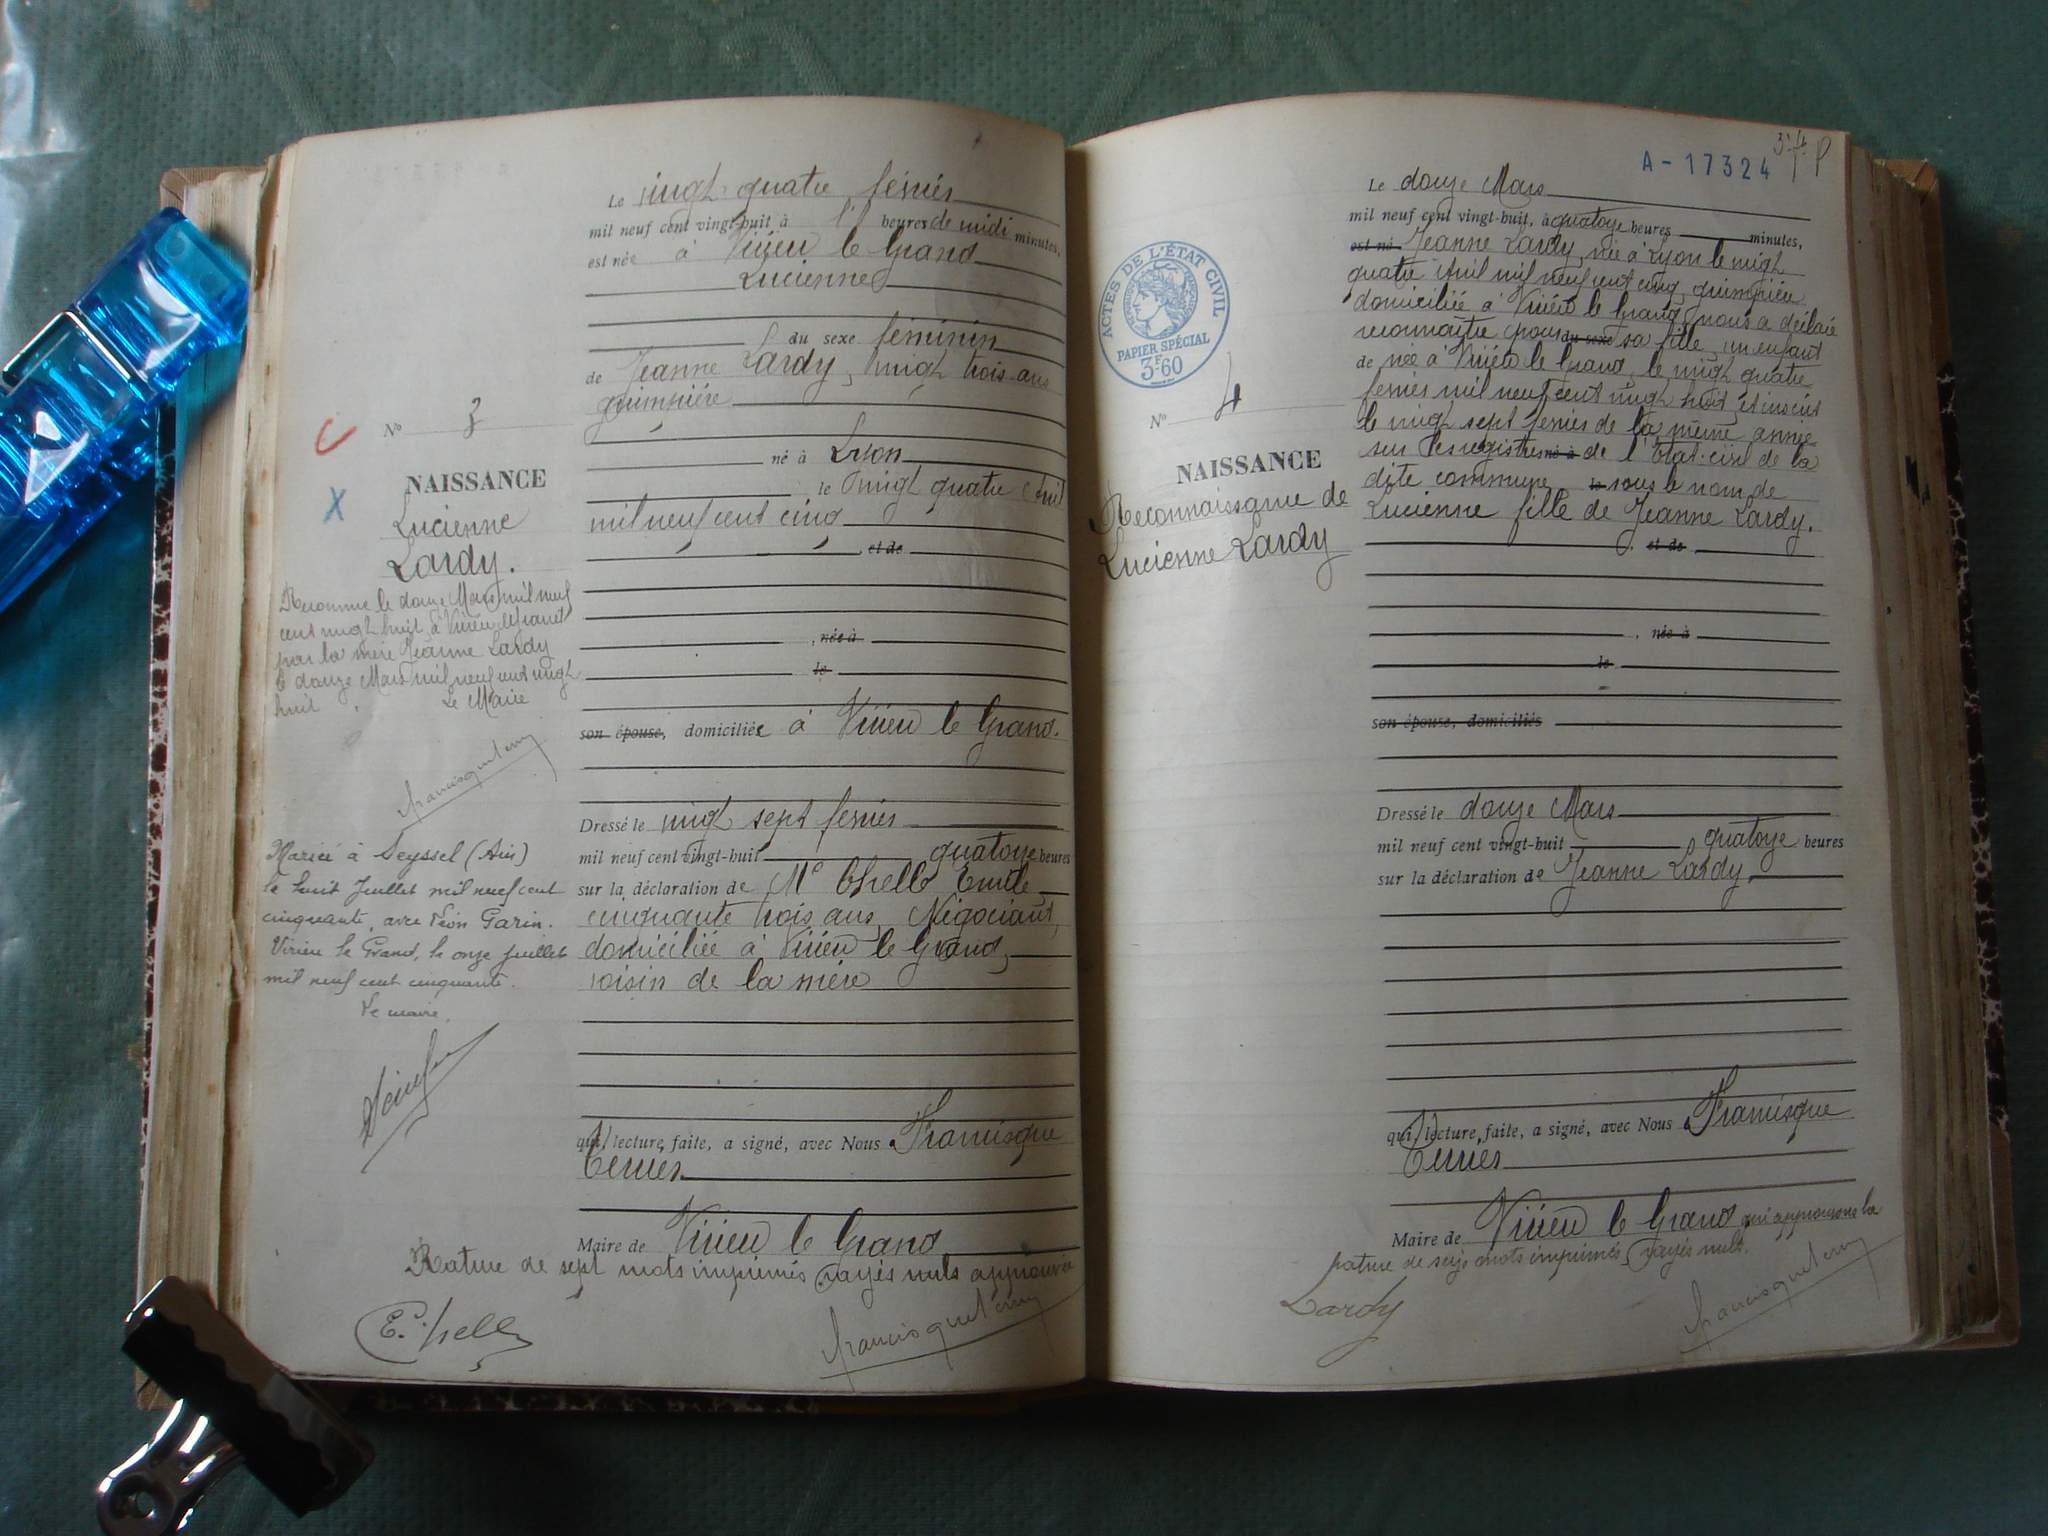 Le vingt quatre février
mil neuf cent vingt-huit à 11 heures de midi minutes,
est née à Virieu le Grand
Lucienne
du sexe féminin
de Jeanne Lardy, vingt trois ans
guimpière
né à Lyon
le vingt quatre Avril
mil neuf cent cinq
, et de
, née à
le
son épouse, domiciliée à Virieu le Grand.
Dressé le vingt sept février
mil neuf cent vingt-huit quatorze heures
sur la déclaration de Mr Chelle Emile
cinquante trois ans, Négociant,
domiciliée à Virieu le Grand,
voisin de la mère
qui, lecture faite, a signé, avec Nous Francisque
Ternes
Maire de Virieu le Grand
Rature de sept mots imprimés rayés nuls approuvée
No 3
NAISSANCE
Lucienne
Lardy.
Reconnue le douze Mars mil neuf
cent vingt huit à Virieu le Grand
par la mère Jeanne Lardy
le douze Mars mil neuf cent vingt
huit Le Maire
Mariée à Seyssel (Ain)
le huit Juillet mil neuf cent
cinquante, avec Léon Garin.
Virieu le Grand, le onze juillet
mil neuf cent cinquante.
Le maire,
A-17324
ACTES DE L'ÉTAT CIVIL
PAPIER SPÉCIAL
3F.60
No 4
NAISSANCE
Reconnaissance de
Lucienne Lardy
Le douze Mars
mil neuf cent vingt-huit, à quatorze heures minutes,
est né Jeanne Lardy, née à Lyon le vingt
quatre Avril mil neuf cent cinq, guimpière
domiciliée à Virieu le Grand, nous a déclaré
reconnaître pour du sexe sa fille, un enfant
de née à Virieu le Grand, le vingt quatre
février mil neuf cent vingt huit, et inscrit
le vingt sept février de la même année
sur les registres né à de l'Etat-civil de la
dite commune le sous le nom de
Lucienne fille de Jeanne Lardy.
, et de
, née à
le
son épouse, domiciliés
Dressé le douze Mars
mil neuf cent vingt-huit quatorze heures
sur la déclaration de Jeanne Lardy,
qui, lecture faite, a signé, avec Nous Francisque
Ternes
Maire de Virieu le Grand qui approuvons la
rature de seize mots imprimés rayés nuls.
Lardy